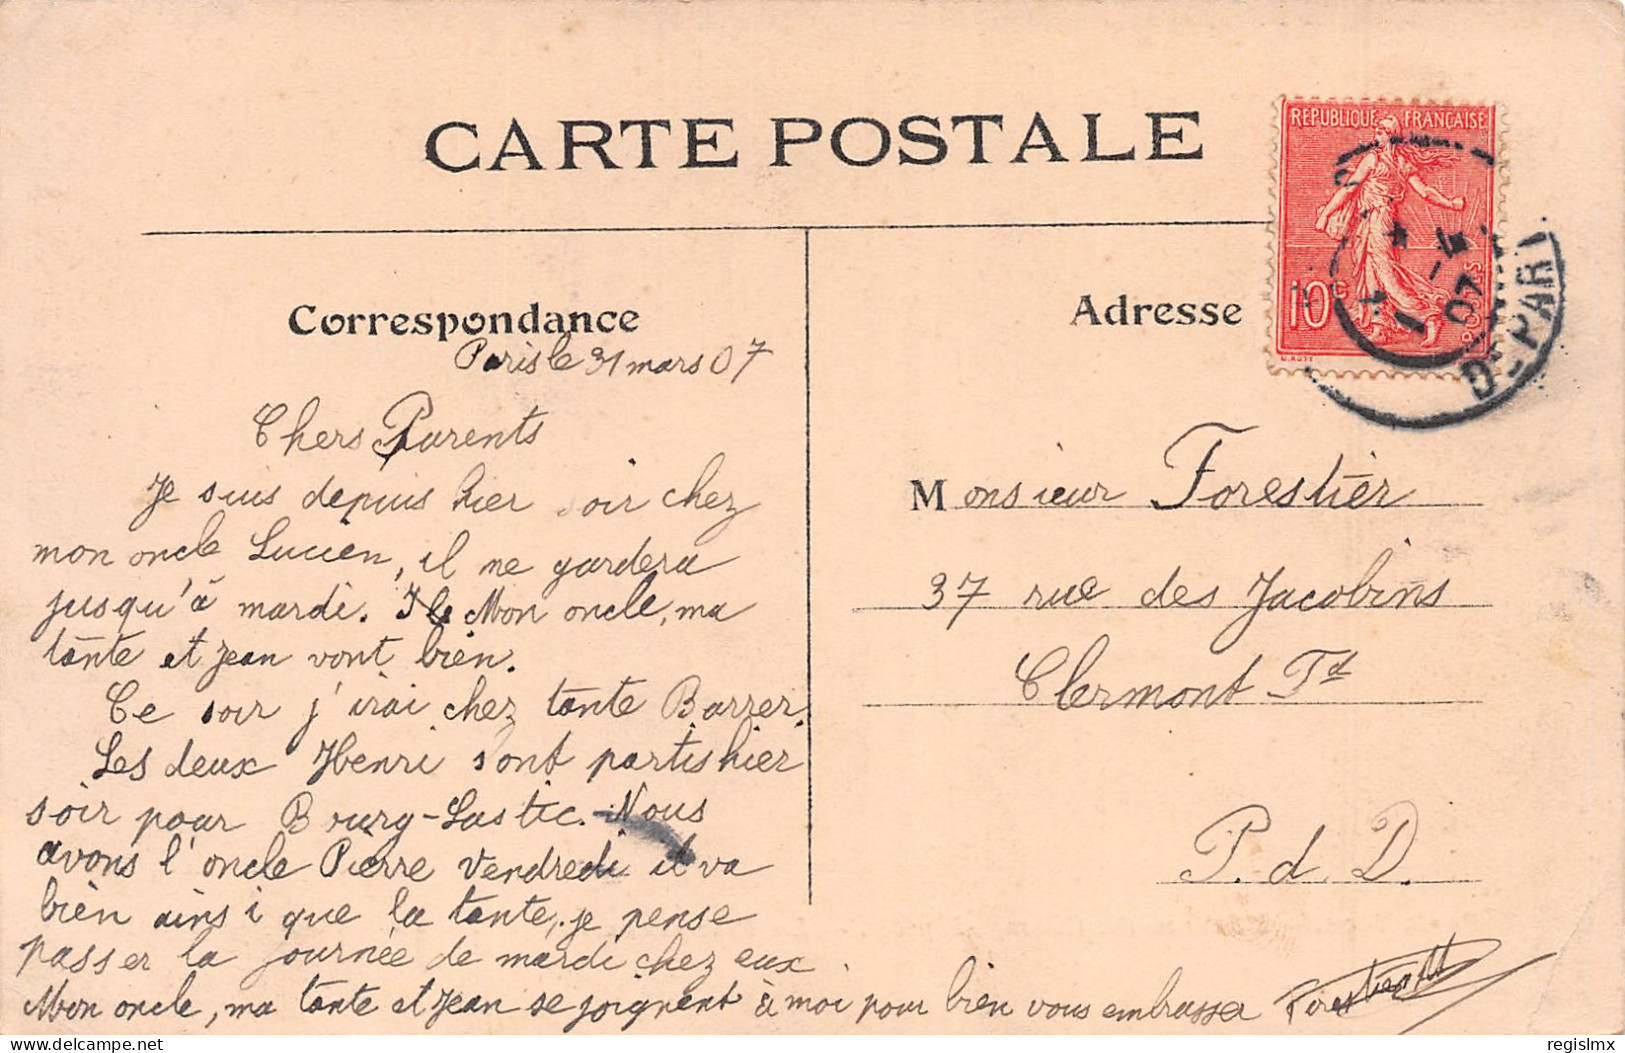 CARTE POSTALE
REPUBLIQUE FRANÇAISE
10 c
POSTES
DEPART
07
Correspondance
Paris le 31 mars 07
Chers Parents
Je suis depuis hier soir chez
mon oncle Lucien, il me gardera
jusqu'à mardi. Mon oncle, ma
tante et Jean vont bien.
Ce soir j'irai chez tante Barrer.
Les deux Henri sont partis hier
soir pour Bourg-Lastic. Nous
avons l'oncle Pierre Vendredi il va
bien ainsi que la tante, je pense
passer la journée de mardi chez eux.
Mon oncle, ma tante et Jean se joignent à moi pour bien vous embrasser
Forestier
Adresse
Monsieur Forestier
37 rue des Jacobins
Clermont Fd
P. d. D.
delcampe.net
regislmx